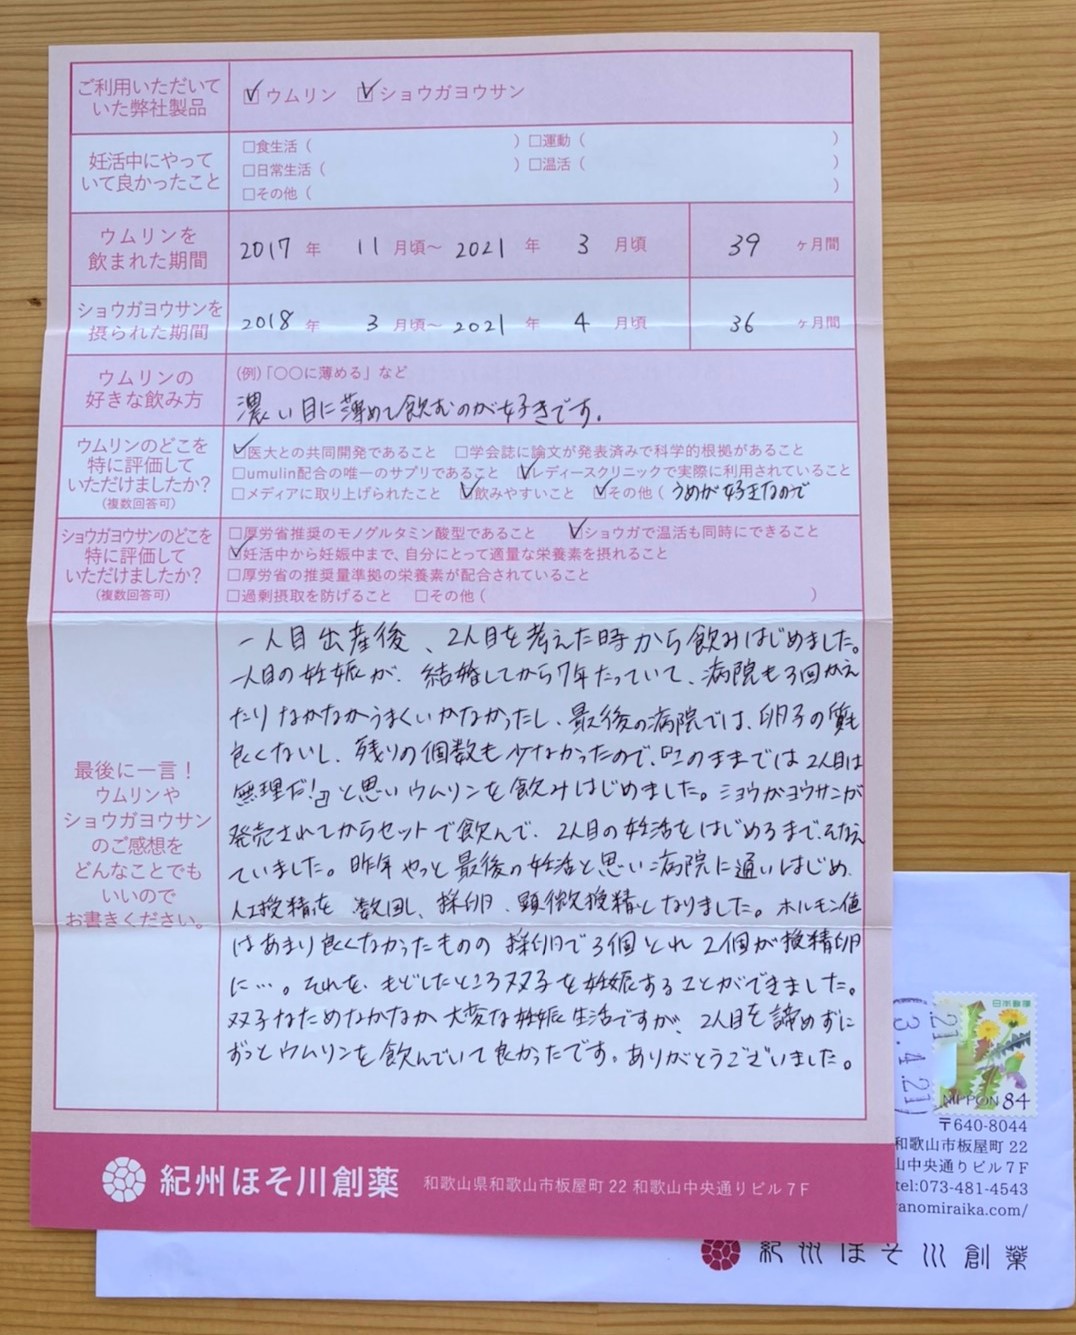 ご利用いただいて
いた弊社製品
☑ウムリン ☑ショウガヨウサン
妊活中にやって
いて良かったこと
□食生活（ ）□運動（ ）
□日常生活（ ）□温活（ ）
□その他（ ）
ウムリンを
飲まれた期間
2017年 11月頃～2021年 3月頃 39ヶ月間
ショウガヨウサンを
摂られた期間
2018年 3月頃～2021年 4月頃 36ヶ月間
ウムリンの
好きな飲み方
(例)「〇〇に薄める」など
濃い目に薄めて飲むのが好きです。
ウムリンのどこを
特に評価して
いただけましたか?
(複数回答可)
☑医大との共同開発であること □学会誌に論文が発表済みで科学的根拠があること
□umulin配合の唯一のサプリであること ☑レディースクリニックで実際に利用されていること
□メディアに取り上げられたこと ☑飲みやすいこと ☑その他（うめが好きなので
ショウガヨウサンのどこを
特に評価して
いただけましたか?
(複数回答可)
□厚労省推奨のモノグルタミン酸型であること ☑ショウガで温活も同時にできること
☑妊活中から妊娠中まで、自分にとって適量な栄養素を摂れること
□厚労省の推奨量準拠の栄養素が配合されていること
□過剰摂取を防げること □その他（ ）
最後に一言！
ウムリンや
ショウガヨウサン
のご感想を
どんなことでも
いいので
お書きください。
一人目出産後、2人目を考えた時から飲みはじめました。
一人目の妊娠が、結婚してから7年たっていて、病院も3回かえ
たりなかなかうまくいかなかったし、最後の病院では、卵子の質も
良くないし、残りの個数も少なかったので、『このままでは2人目は
無理だ!』と思いウムリンを飲みはじめました。ショウガヨウサンが
発売されてからセットで飲んで、2人目の妊活をはじめるまで、そなえ
ていました。昨年やっと最後の妊活と思い病院に通いはじめ、
人工授精を数回し、採卵、顕微授精となりました。ホルモン値
はあまり良くなかったものの採卵で3個とれ2個が授精卵
に…。それを、もどしたところ双子を妊娠することができました。
双子なためなかなか大変な妊娠生活ですが、2人目を諦めずに
ずっとウムリンを飲んでいて良かったです。ありがとうございました。
紀州ほそ川創薬 和歌山県和歌山市板屋町22 和歌山中央通りビル7F
日本郵便
NIPPON 84
21
3.4.21
〒640-8044
和歌山市板屋町 22
山中央通りビル7F
tel:073-481-4543
anomiraika.com/
紀州ほそ川創薬